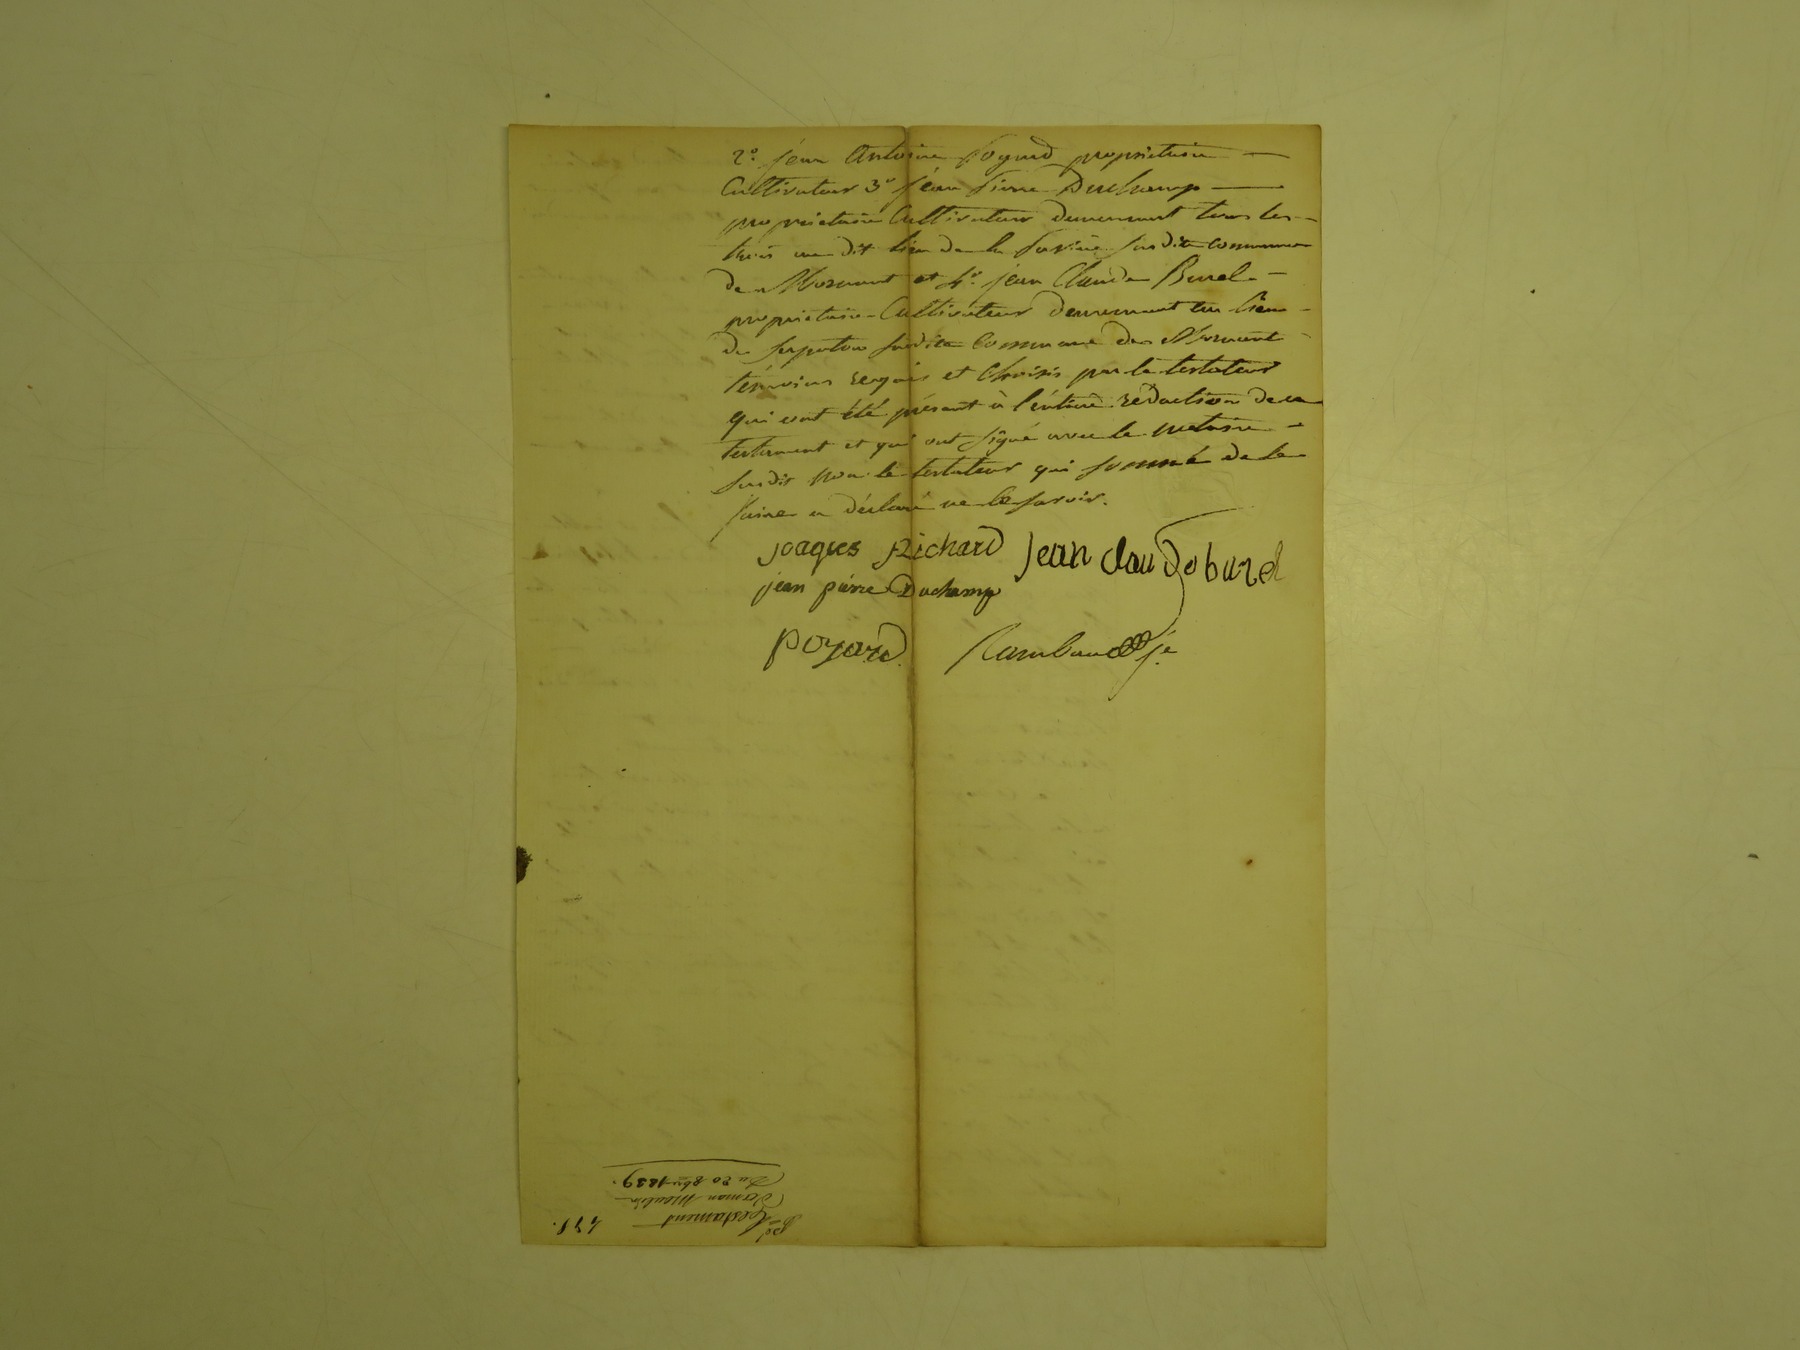 2º. jean Antoine Poyard propriétaire
Cultivateur 3º jean Pierre Duchamp
propriétaire Cultivateur demeurant tous les
trois au dit lieu de la susdite commune
de Mornant et 4º. jean Claude Burel
propriétaire Cultivateur demeurant au lieu
de susdite Commune de Mornant
témoins requis et choisis par le testateur
qui ont été présent à l'entière rédaction de ce
testament et qui ont signé avec le notaire
susdit non le testateur qui sommé de le
faire a déclaré ne le savoir.
joaques Richard jean claude burel
jean pierre Duchamp
poyard Rambaud je
Testament
Du 20 8bre 1839.